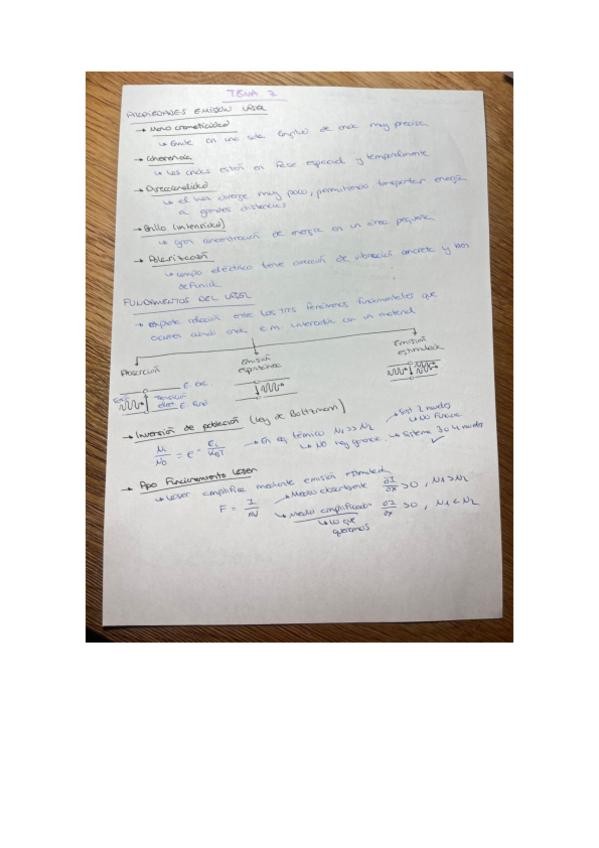 TEMA 2
PROPIEDADES EMISIÓN LÁSER
→ Monocromaticidad
↳ Emite en una sola longitud de onda muy precisa
→ Coherencia
↳ Las ondas están en fase espacial y temporalmente
→ Direccionalidad
↳ el haz diverge muy poco, permitiendo transportar energía
a grandes distancias
→ Brillo (intensidad)
↳ gran concentración de energía en un área pequeña
→ Polarización
↳ campo eléctrico tiene dirección de vibración concreta y bien
definida
FUNDAMENTOS DEL LÁSER
→ explota relación entre los tres fenómenos fundamentales que
ocurren cuando onda e.m. interacciona con un material
Absorción
Emisión
espontánea
Emisión
estimulada
E. exc.
Transición
elect.
E. fund
→ Inversión de población (Ley de Boltzmann)
Ni/N0 = e^- Ei/KBT
→ En eq. térmico N1 >> N2
↳ No hay ganancia
→ Sist 2 niveles
↳ No funciona
↳ Sistema 3 o 4 niveles ✓
→ Funcionamiento Láser
↳ Láser amplifica mediante emisión estimulada
F = I/hν
→ Medio absorbente ∂I/∂x > 0, N1 > N2
↳ Medio amplificador ∂I/∂x > 0, N1 < N2
↳ Lo que
queremos